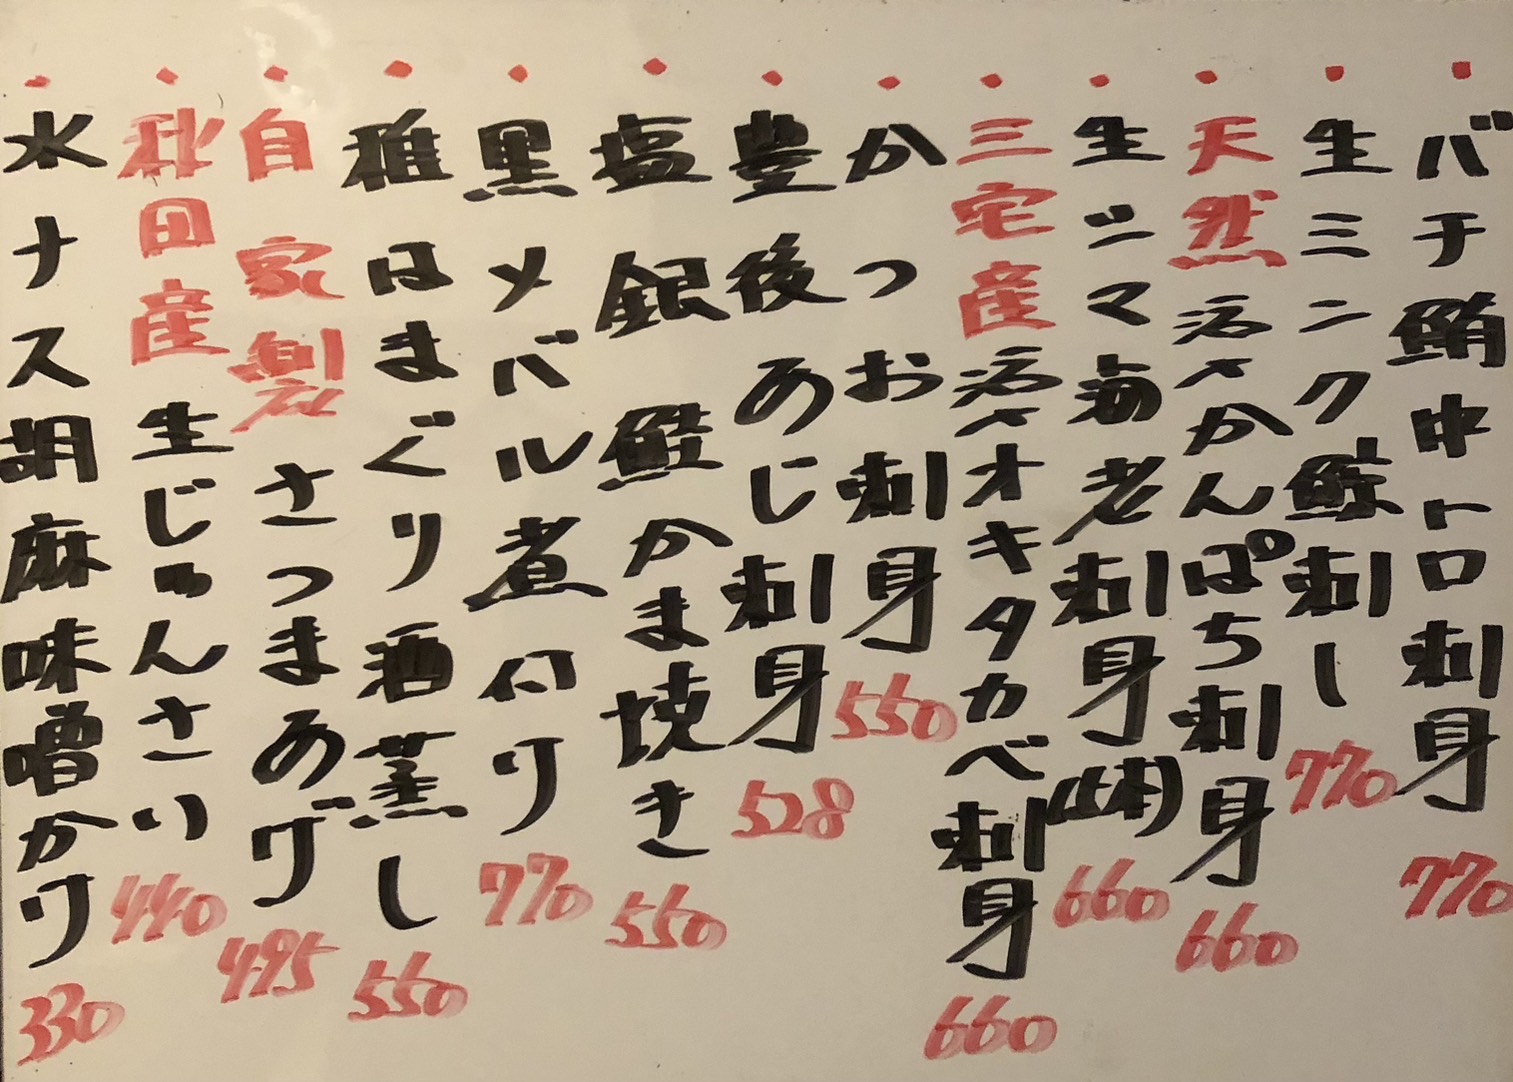 バチ鮪中トロ刺身 770
生ミンク鯨刺し 770
天然活〆かんぱち刺身 660
生シマ海老刺身(5本) 660
三宅産活〆オキタカベ刺身 660
かつお刺身 550
豊後あじ刺身 528
塩銀鮭かま焼き 550
黒メバル煮付け 770
稚はまぐり酒蒸し 550
自家製さつまあげ 495
秋田産生じゅんさい 440
水ナス胡麻味噌かけ 330